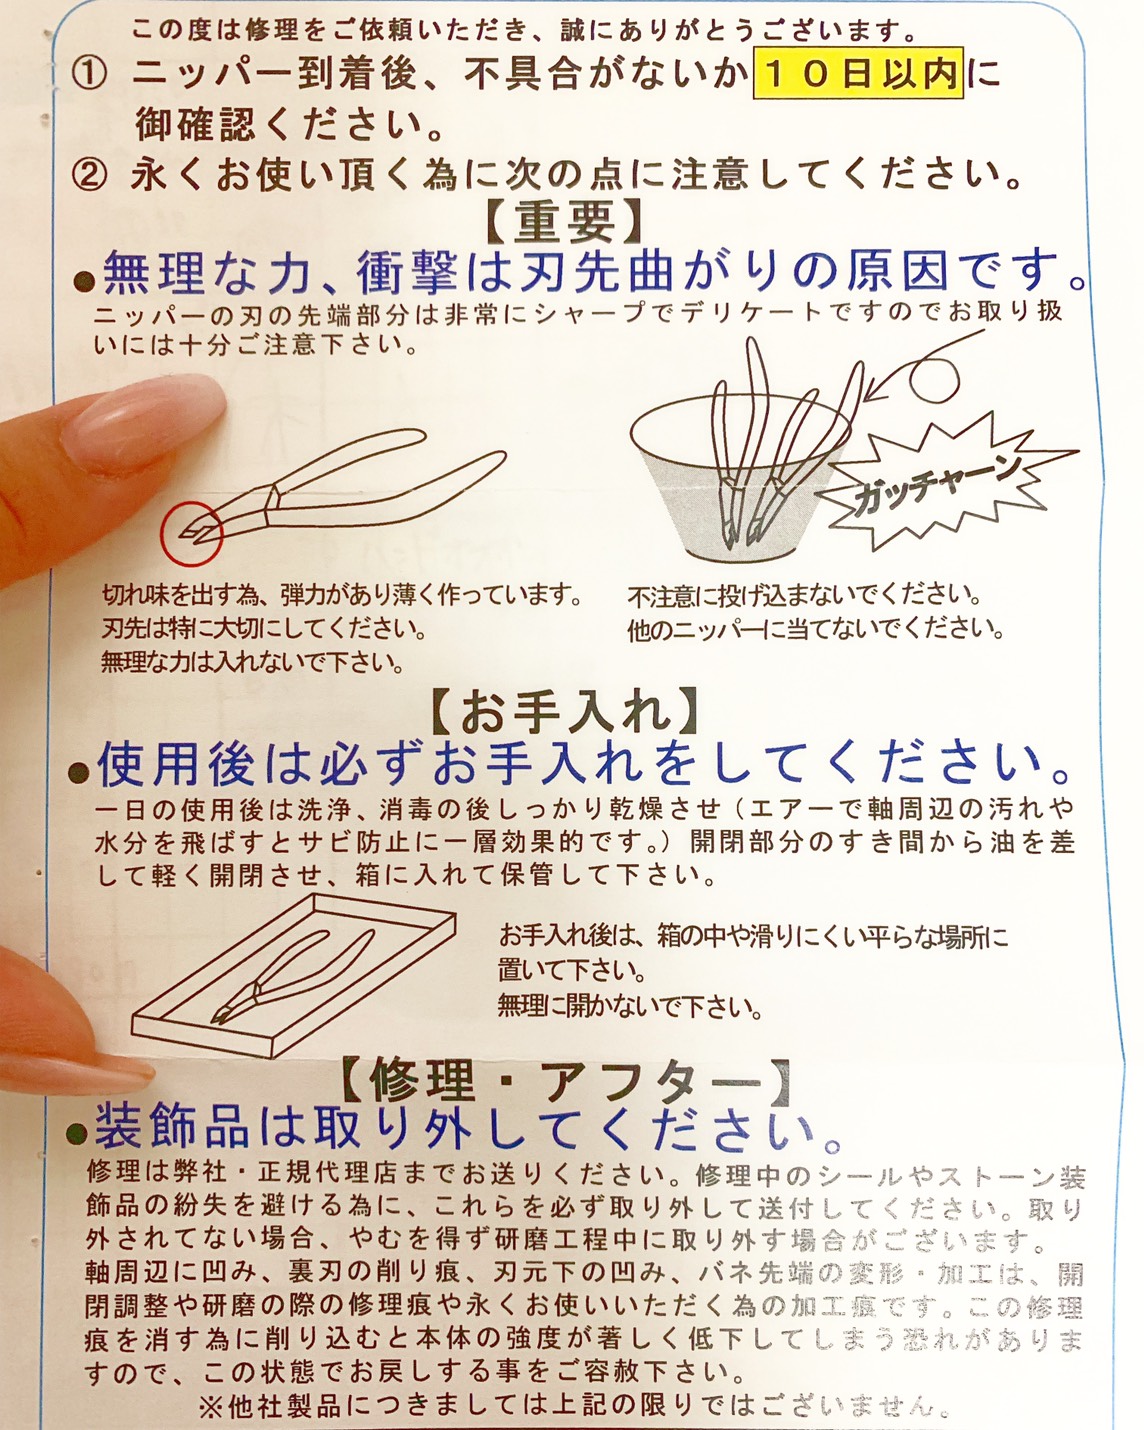 この度は修理をご依頼いただき、誠にありがとうございます。
① ニッパー到着後、不具合がないか１０日以内に
御確認ください。
② 永くお使い頂く為に次の点に注意してください。
【重要】
●無理な力、衝撃は刃先曲がりの原因です。
ニッパーの刃の先端部分は非常にシャープでデリケートですのでお取り扱
いには十分ご注意下さい。
ガッチャーン
切れ味を出す為、弾力があり薄く作っています。
刃先は特に大切にしてください。
無理な力は入れないで下さい。
不注意に投げ込まないでください。
他のニッパーに当てないでください。
【お手入れ】
●使用後は必ずお手入れをしてください。
一日の使用後は洗浄、消毒の後しっかり乾燥させ（エアーで軸周辺の汚れや
水分を飛ばすとサビ防止に一層効果的です。）開閉部分のすき間から油を差
して軽く開閉させ、箱に入れて保管して下さい。
お手入れ後は、箱の中や滑りにくい平らな場所に
置いて下さい。
無理に開かないで下さい。
【修理・アフター】
●装飾品は取り外してください。
修理は弊社・正規代理店までお送りください。修理中のシールやストーン装
飾品の紛失を避ける為に、これらを必ず取り外して送付してください。取り
外されてない場合、やむを得ず研磨工程中に取り外す場合がございます。
軸周辺に凹み、裏刃の削り痕、刃元下の凹み、バネ先端の変形・加工は、開
閉調整や研磨の際の修理痕や永くお使いいただく為の加工痕です。この修理
痕を消す為に削り込むと本体の強度が著しく低下してしまう恐れがありま
すので、この状態でお戻しする事をご容赦下さい。
※他社製品につきましては上記の限りではございません。